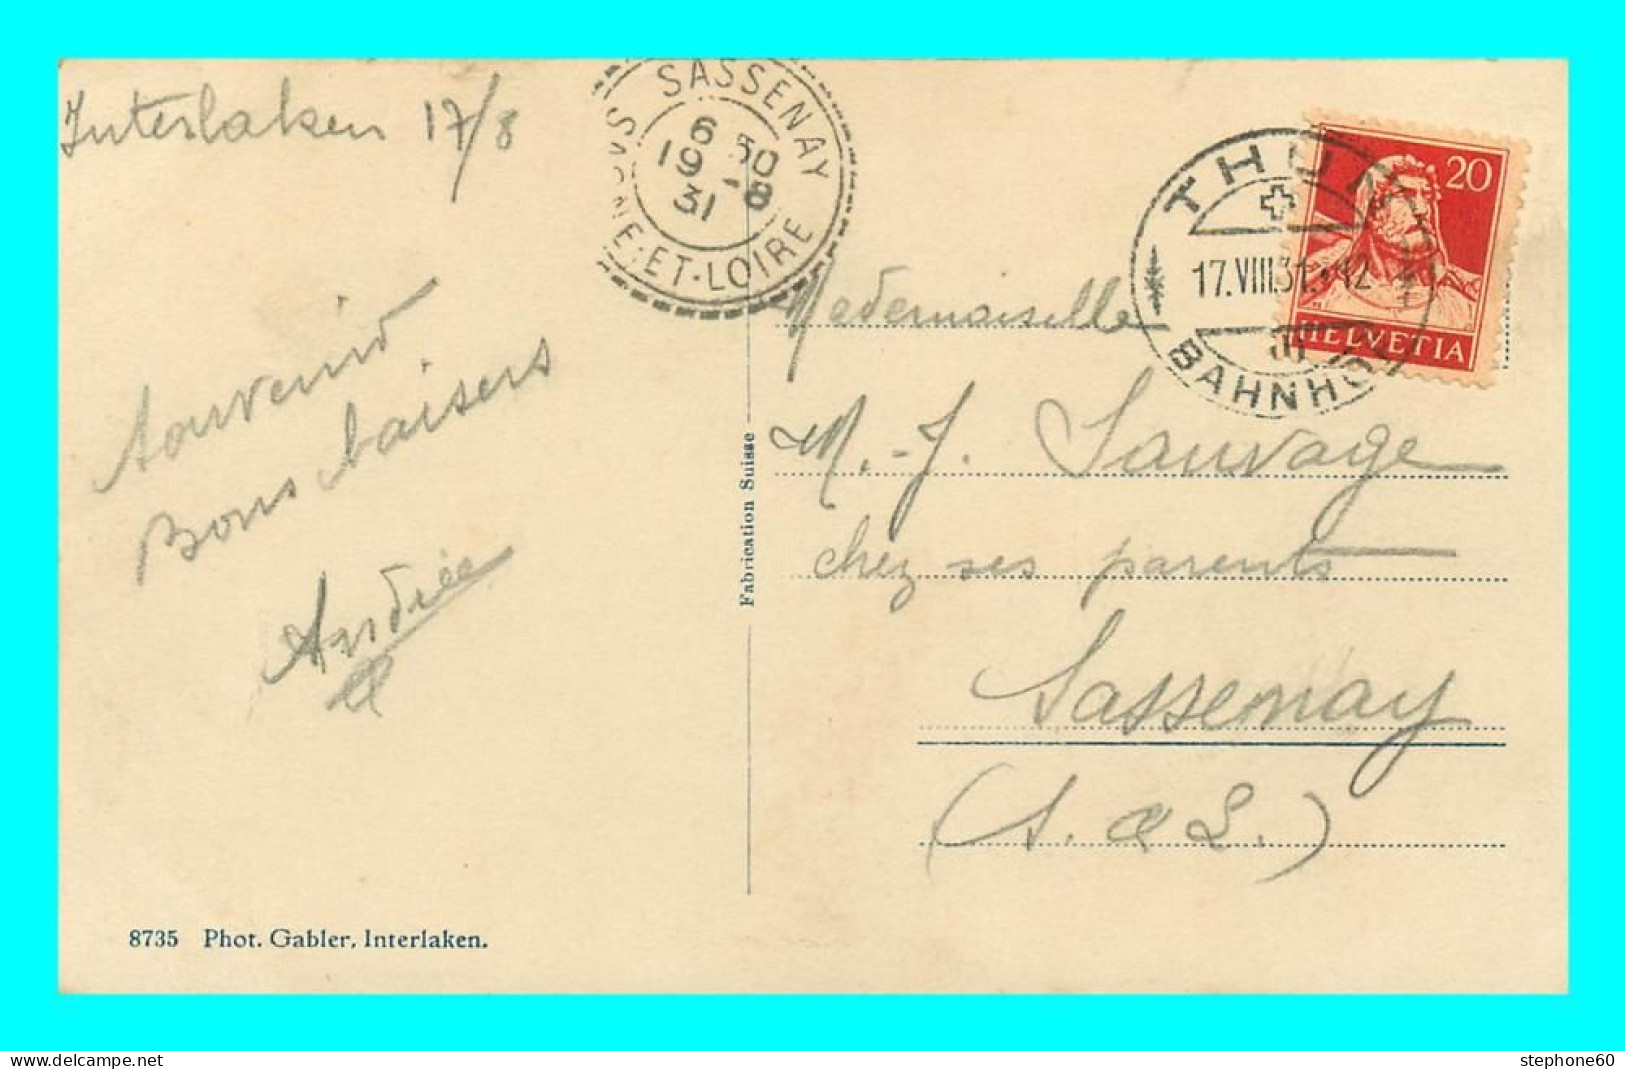 Interlaken 17/8
SASSENAY
6 50
19 -8
31
SAÔNE-ET-LOIRE
THUN
17.VIII.31.-12
BAHNHOF
20
HELVETIA
Souvenir
Bons baisers
Andrée
Mademoiselle
M.-J. Sauvage
chez ses parents
Sassenay
(S. & L.)
Fabrication Suisse
8735 Phot. Gabler, Interlaken.
stephone60